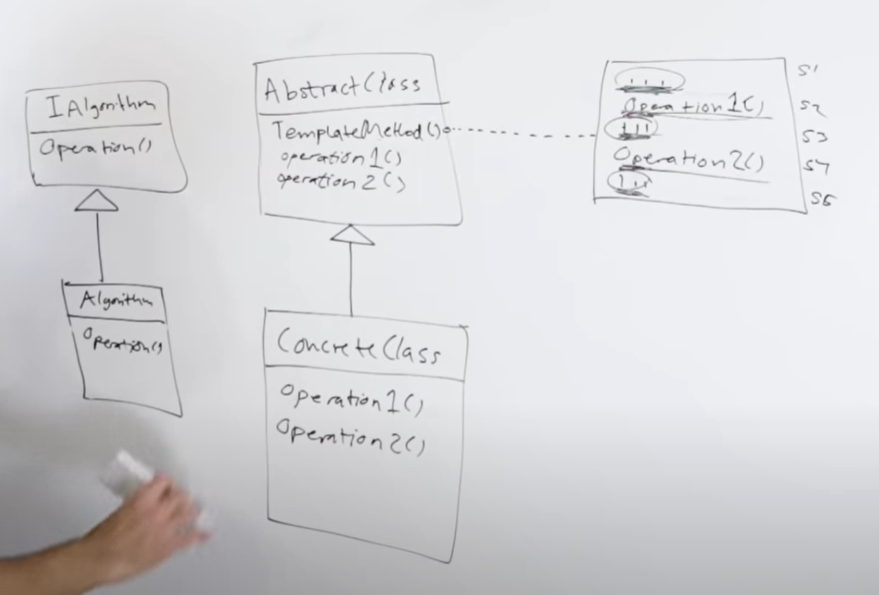 IAlgorithm
Operation()
Algorithm
Operation()
AbstractClass
TemplateMethod()
operation1()
operation2()
ConcreteClass
Operation1()
Operation2()
...
Operation1()
...
Operation2()
...
S1
S2
S3
S4
S5